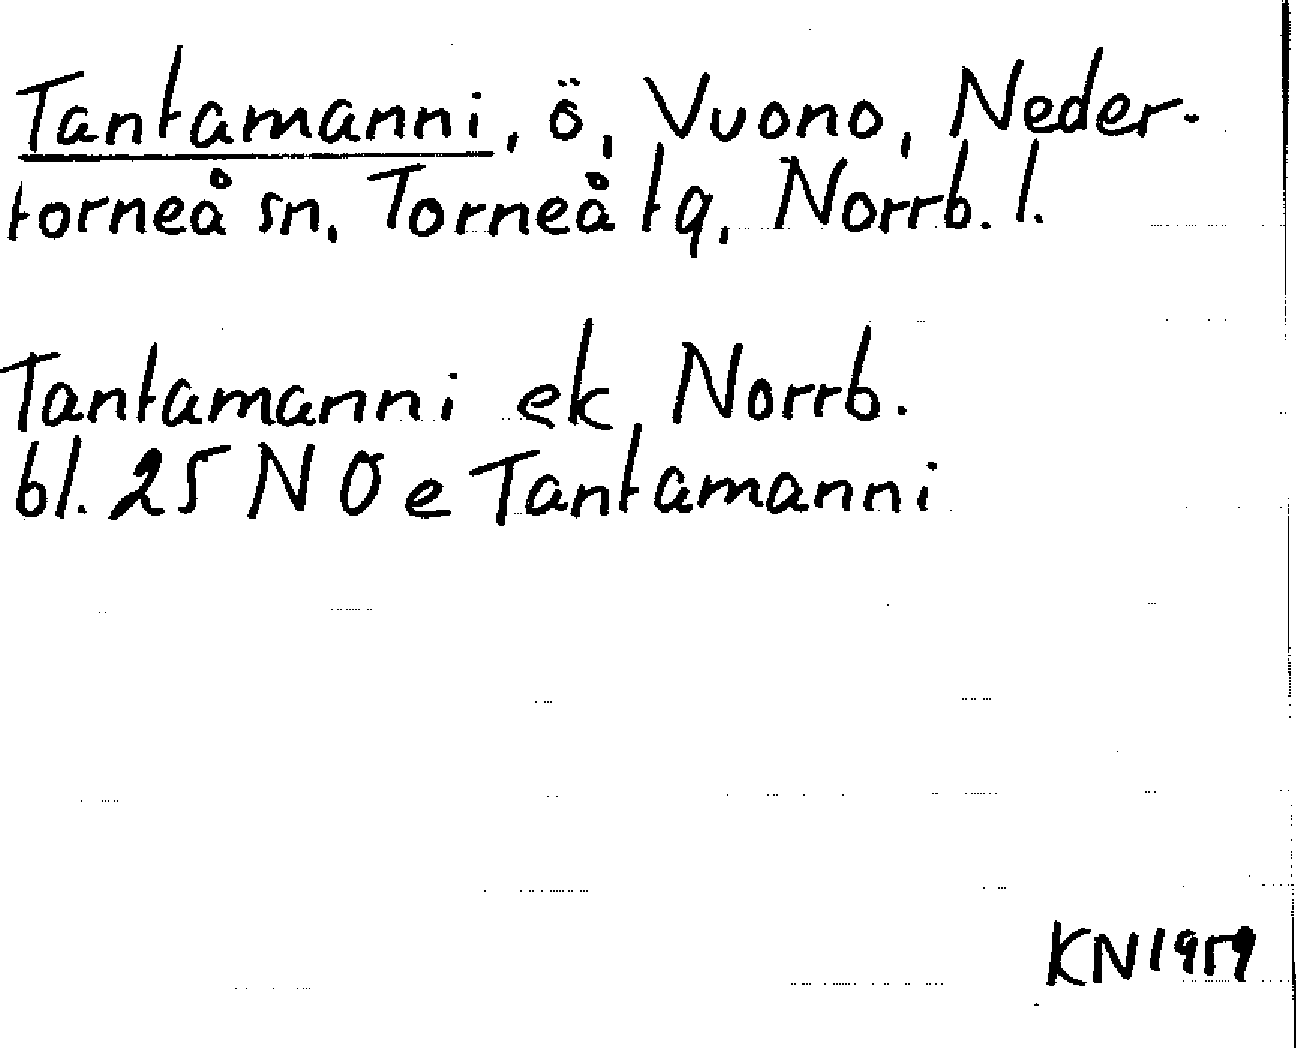 Tantamanni, ö, Vuono, Neder-
torneå sn, Torneå tg, Norrb. l.
Tantamanni ek Norrb.
bl. 25 NO e Tantamanni
KN 1959